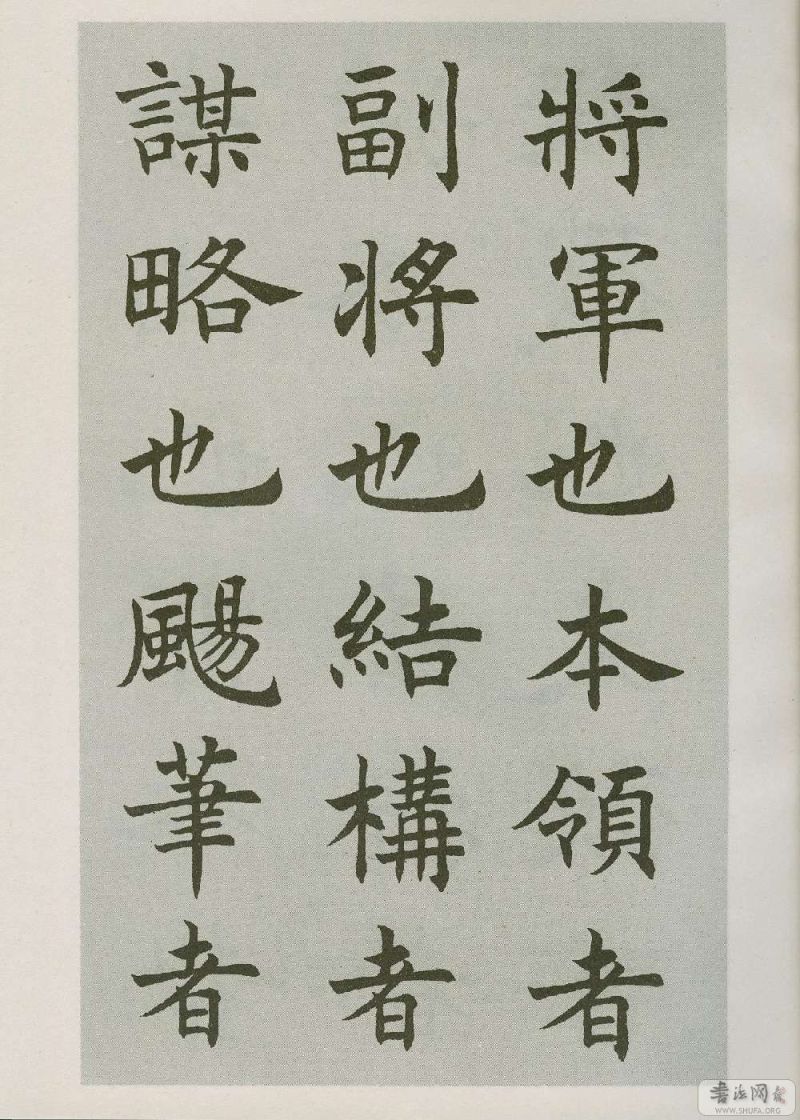 將軍也本領者
副將也結構者
謀略也颺筆者
書法网
WWW.SHUFA.ORG